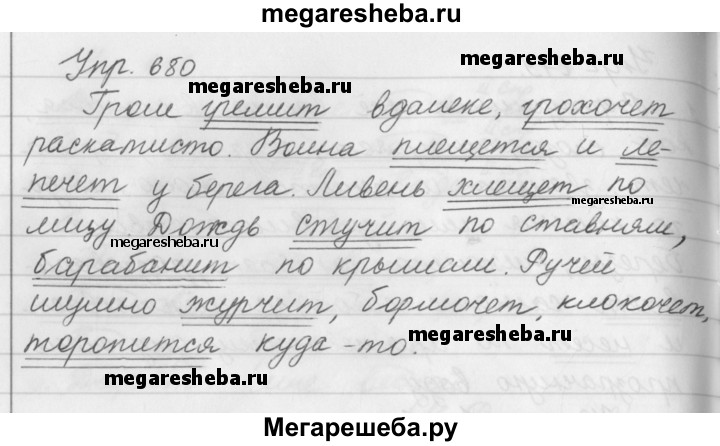 megaresheba.ru
Упр. 680
megaresheba.ru
megaresheba.ru
Гром гремит вдалеке, грохочет
раскатисто. Волна плещется и ле-
печет у берега. Ливень хлещет по
megaresheba.ru
лицу. Дождь стучит по ставням,
megaresheba.ru
барабанит по крышам. Ручей
шумно журчит, бормочет, клокочет,
торопится куда-то.
megaresheba.ru
megaresheba.ru
Мегарешеба.ру